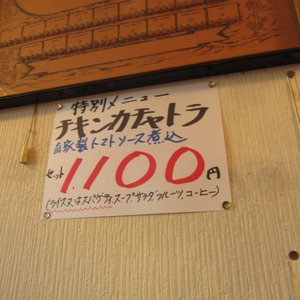 特別メニュー
チキンカチャトラ
自家製トマトソース煮込
セット 1,100円
(ライス又はスパゲティ、スープ、サラダ、フルーツ、コーヒー)